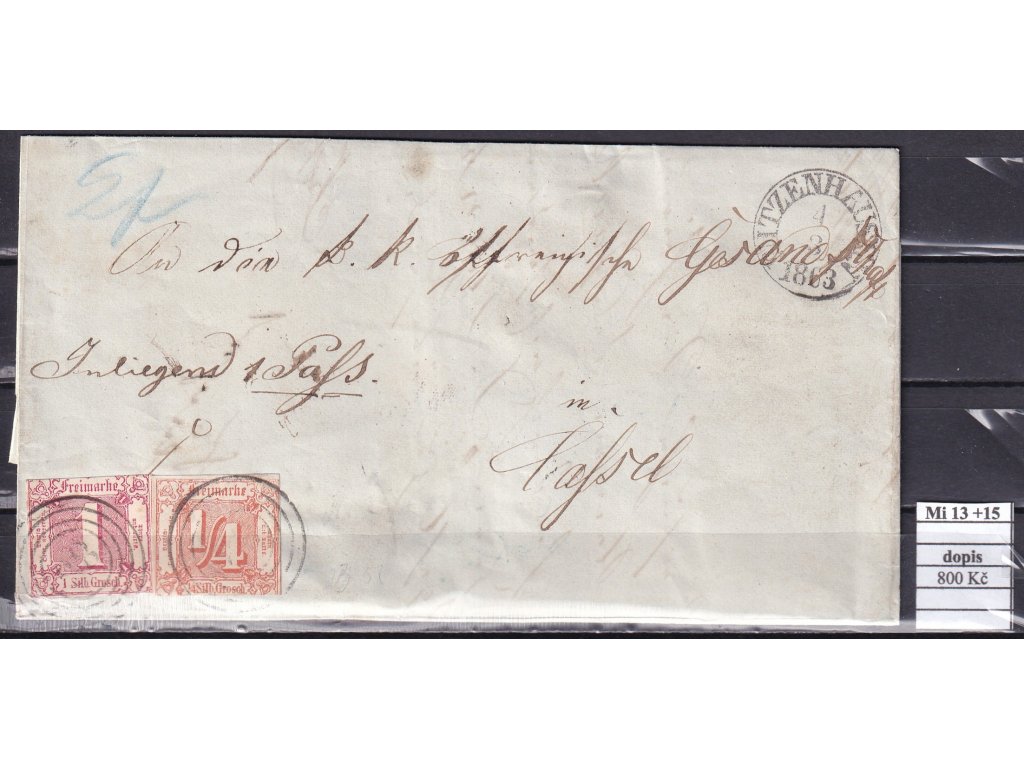 An die k. k. öffreichische Gesandtschaft
Inliegend 1 Pass.
in
Cassel
TZENHAUSEN
4
3
1863
Freimarke
1
1 Silb. Grosch.
Freimarke
1/4
1/4 Silb. Grosch.
Mi 13 +15
dopis
800 Kč